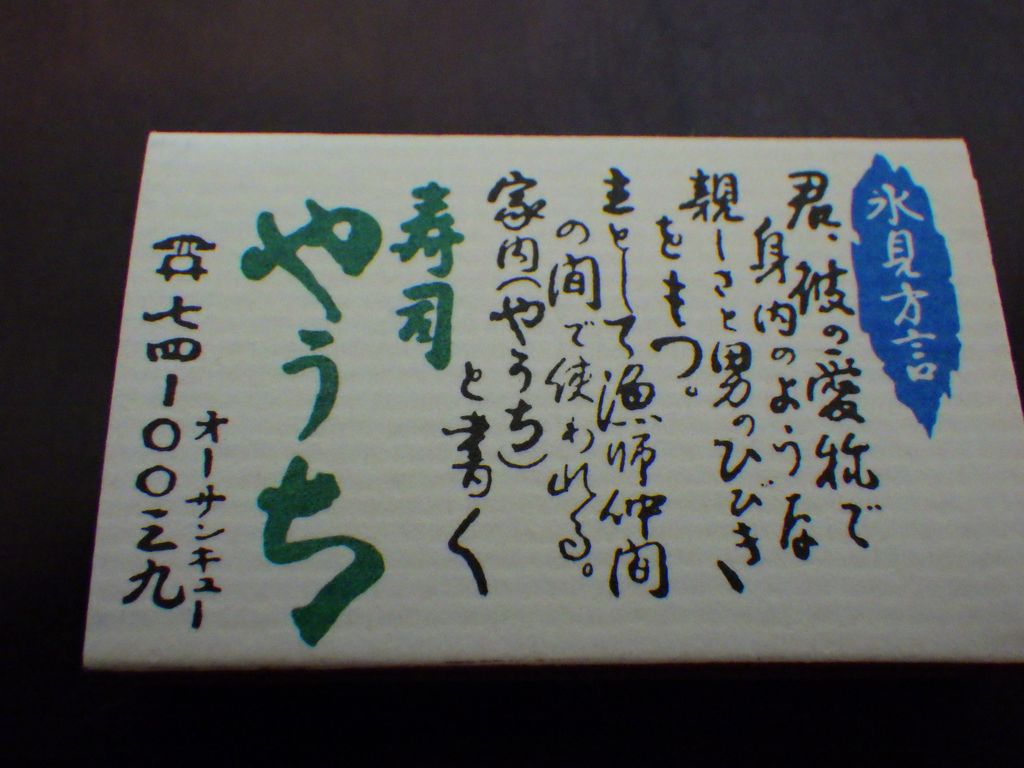 氷見方言
君、彼の愛称で
身内のような
親しさと男のひびき
をもつ。
主として漁師仲間
の間で使われる。
家内(やうち)
と書く
寿司
やうち
オーサンキュー
☎七四ー〇〇三九